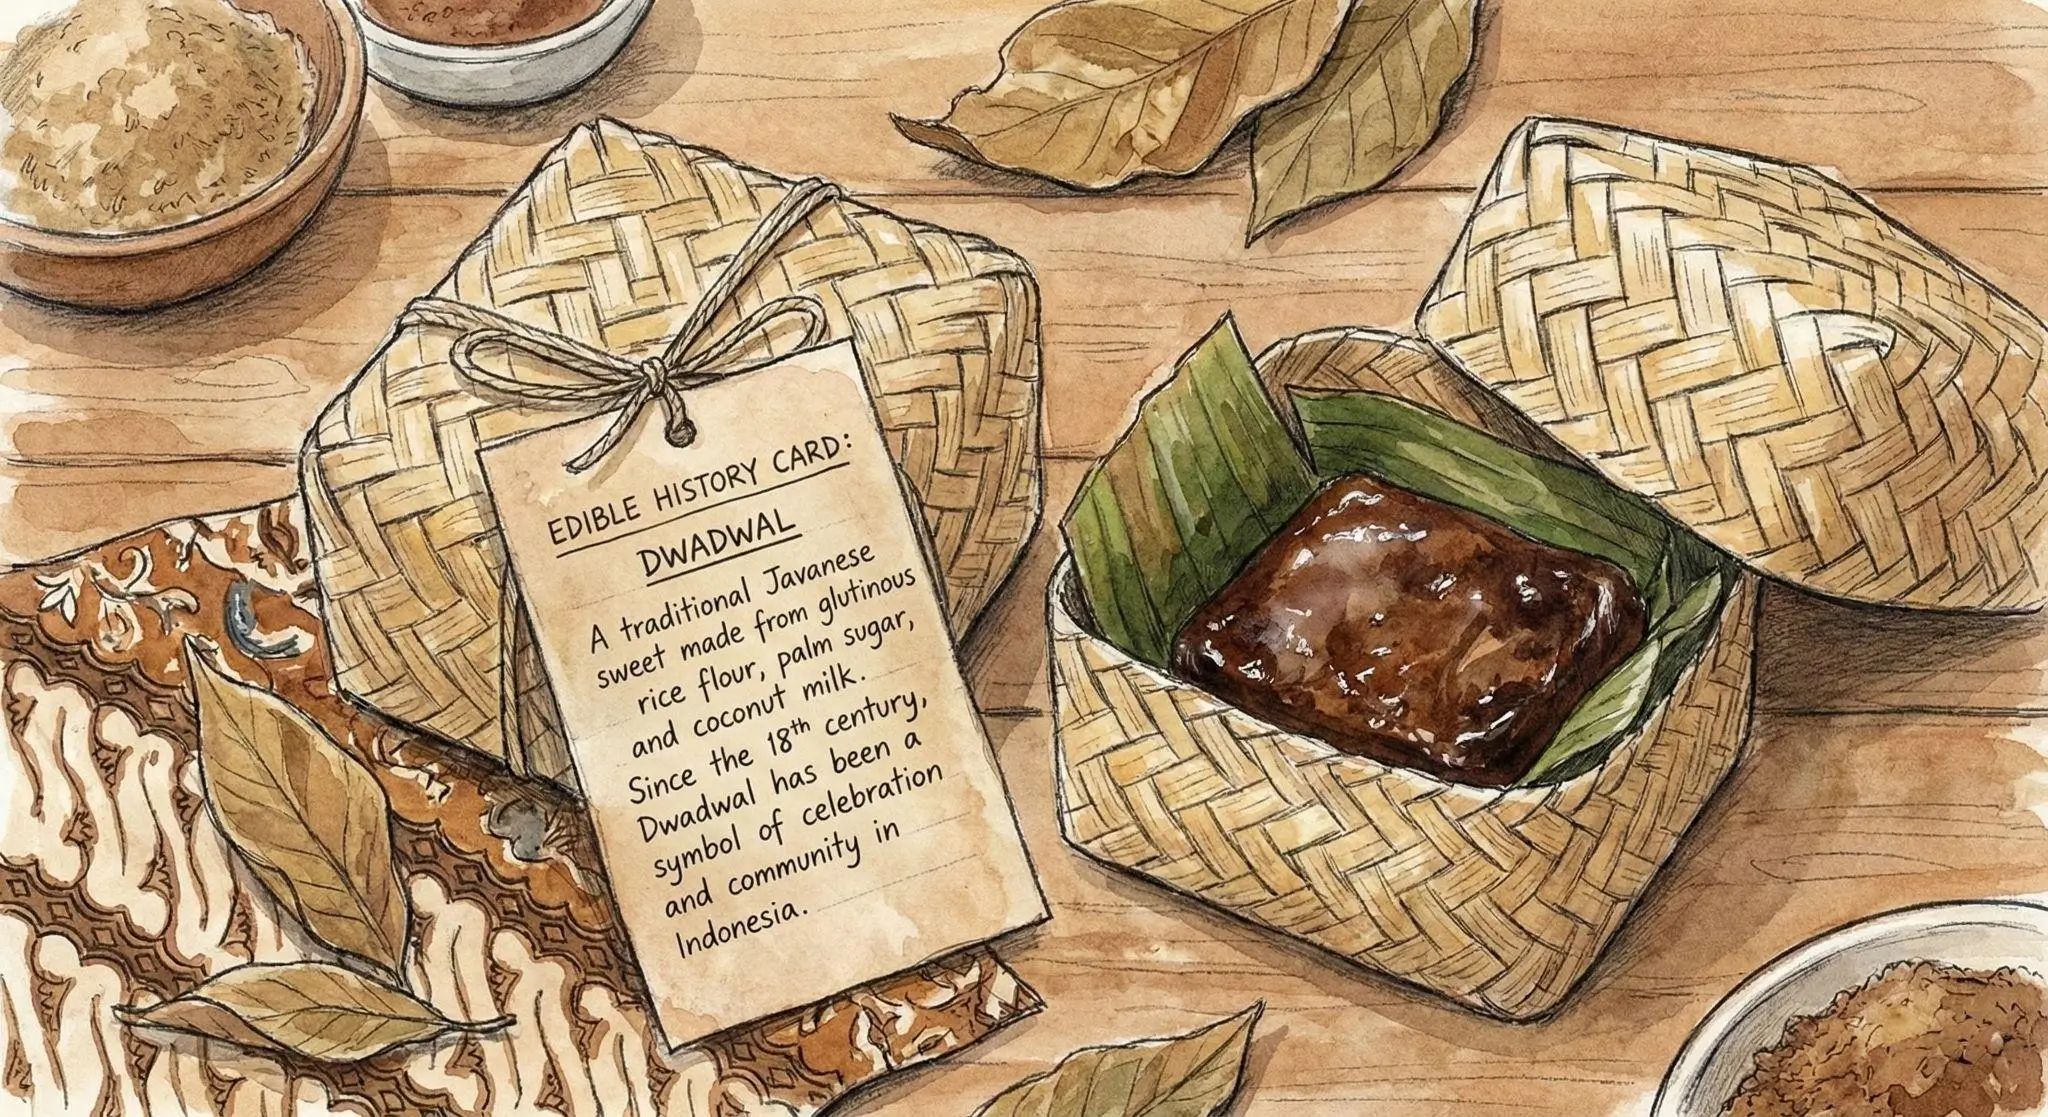 EDIBLE HISTORY CARD:
DWADWAL
A traditional Javanese
sweet made from glutinous
rice flour, palm sugar,
and coconut milk.
Since the 18th century,
Dwadwal has been a
symbol of celebration
and community in
Indonesia.